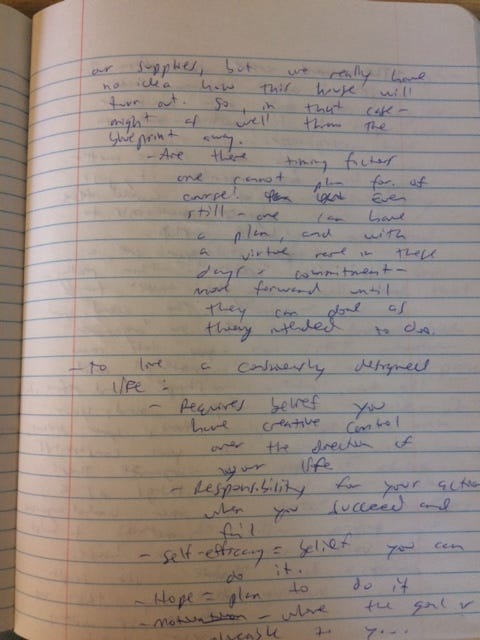 our supplies, but we really have
no idea how this house will
turn out. So, in that case -
might as well throw the
blueprint away.
- Are there timing factors
one cannot plan for, of
course! Even
still - one can have
a plan, and with
a virtue rare in these
days - commitment -
move forward until
they can done as
they intended to do.
- To live a consciously designed
life :
- Requires belief you
have creative control
over the direction of
your life
- Responsibility for your action
when you succeed and
fail
- Self-efficacy = belief you can
do it.
- Hope = plan to do it
- motivation - where the goal
to y...